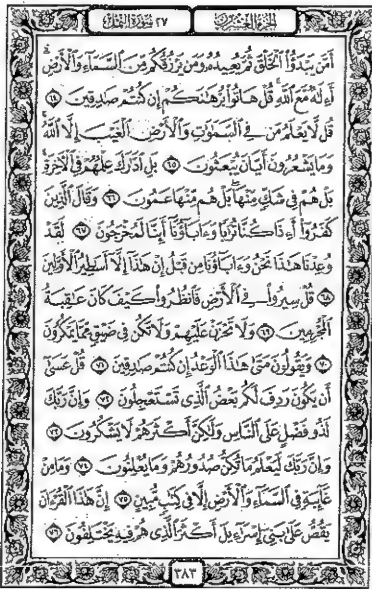 الجزء العشرون ٢٧ سورة النمل
أَمَّن يَبْدَؤُا۟ ٱلْخَلْقَ ثُمَّ يُعِيدُهُۥ وَمَن يَرْزُقُكُم مِّنَ ٱلسَّمَآءِ وَٱلْأَرْضِ
أَءِلَٰهٌ مَّعَ ٱللَّهِ قُلْ هَاتُوا۟ بُرْهَٰنَكُمْ إِن كُنتُمْ صَٰدِقِينَ ٦٤
قُل لَّا يَعْلَمُ مَن فِى ٱلسَّمَٰوَٰتِ وَٱلْأَرْضِ ٱلْغَيْبَ إِلَّا ٱللَّهُ
وَمَا يَشْعُرُونَ أَيَّانَ يُبْعَثُونَ ٦٥ بَلِ ٱدَّٰرَكَ عِلْمُهُمْ فِى ٱلْءَاخِرَةِ
بَلْ هُمْ فِى شَكٍّ مِّنْهَا بَلْ هُم مِّنْهَا عَمُونَ ٦٦ وَقَالَ ٱلَّذِينَ
كَفَرُوٓا۟ أَءِذَا كُنَّا تُرَٰبًا وَءَابَآؤُنَآ أَئِنَّا لَمُخْرَجُونَ ٦٧ لَقَدْ
وُعِدْنَا هَٰذَا نَحْنُ وَءَابَآؤُنَا مِن قَبْلُ إِنْ هَٰذَآ إِلَّآ أَسَٰطِيرُ ٱلْأَوَّلِينَ
٦٨ قُلْ سِيرُوا۟ فِى ٱلْأَرْضِ فَٱنظُرُوا۟ كَيْفَ كَانَ عَٰقِبَةُ
ٱلْمُجْرِمِينَ ٦٩ وَلَا تَحْزَنْ عَلَيْهِمْ وَلَا تَكُن فِى ضَيْقٍ مِّمَّا يَمْكُرُونَ
٧٠ وَيَقُولُونَ مَتَىٰ هَٰذَا ٱلْوَعْدُ إِن كُنتُمْ صَٰدِقِينَ ٧١ قُلْ عَسَىٰٓ
أَن يَكُونَ رَدِفَ لَكُم بَعْضُ ٱلَّذِى تَسْتَعْجِلُونَ ٧٢ وَإِنَّ رَبَّكَ
لَذُو فَضْلٍ عَلَى ٱلنَّاسِ وَلَٰكِنَّ أَكْثَرَهُمْ لَا يَشْكُرُونَ ٧٣
وَإِنَّ رَبَّكَ لَيَعْلَمُ مَا تُكِنُّ صُدُورُهُمْ وَمَا يُعْلِنُونَ ٧٤ وَمَا مِنْ
غَآئِبَةٍ فِى ٱلسَّمَآءِ وَٱلْأَرْضِ إِلَّا فِى كِتَٰبٍ مُّبِينٍ ٧٥ إِنَّ هَٰذَا ٱلْقُرْءَانَ
يَقُصُّ عَلَىٰ بَنِىٓ إِسْرَٰٓءِيلَ أَكْثَرَ ٱلَّذِى هُمْ فِيهِ يَخْتَلِفُونَ ٧٦
٣٨٣